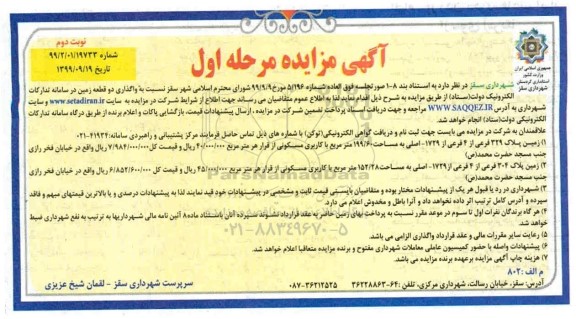 نوبت دوم
آگهی مزایده مرحله اول
شماره ۹۹/۲/۰۱/۱۹۷۳۳
تاریخ ۱۳۹۹/۰۹/۱۹
جمهوری اسلامی ایران
وزارت کشور
استانداری کردستان
شهرداری سقز
شهرداری سقز در نظر دارد به استناد بند ۸-۱ صورتجلسه فوق العاده شماره ۵/۱۹۶ مورخ ۹۹/۹/۹ شورای محترم اسلامی شهر سقز نسبت به واگذاری دو قطعه زمین در سامانه تدارکات
الکترونیک دولت(ستاد) از طریق مزایده به شرح ذیل اقدام نماید لذا به اطلاع عموم متقاضیان می رساند جهت اطلاع از شرایط شرکت در مزایده به سایت www.setadiran.ir و سایت
شهرداری به آدرس WWW.SAQQEZ.IR مراجعه و جهت دریافت اسناد پرداخت تضمین شرکت در مزایده، ارسال پیشنهادات قیمت، بازگشایی پاکات و اعلام برنده از طریق درگاه سامانه تدارکات
الکترونیکی دولت(ستاد) انجام خواهد شد.
علاقمندان به شرکت در مزایده می بایست جهت ثبت نام و دریافت گواهی الکترونیکی(توکن) با شماره های ذیل تماس حاصل فرمایند مرکز پشتیبانی و راهبری سامانه: ۴۱۹۳۴-۰۲۱
۱) زمین پلاک ۳۲۹ فرعی از ۴ فرعی از ۱۷۲۹- اصلی به مساحت ۱۹۹/۶۰ متر مربع با کاربری مسکونی از قرار هر متر مربع ۴۰/۰۰۰/۰۰۰ ریال و قیمت کل ۷/۹۸۴/۰۰۰/۰۰۰ ریال واقع در خیابان فخر رازی
جنب مسجد حضرت محمد(ص)
۲) زمین پلاک ۳۰۴ فرعی از ۴ فرعی از ۱۷۲۹- اصلی به مساحت ۱۵۲/۲۸ متر مربع با کاربری مسکونی از قرار هر متر مربع ۴۵/۰۰۰/۰۰۰ ریال و قیمت کل ۶/۸۵۲/۶۰۰/۰۰۰ ریال واقع در خیابان فخر رازی
جنب مسجد حضرت محمد(ص)
۳) شهرداری در رد یا قبول هر یک از پیشنهادات مختار بوده و متقاضیان بایستی قیمت ثابت و مشخصی در پیشنهادات خود قید نمایند لذا به پیشنهادات درصدی و یا بالاترین قیمتهای مبهم و فاقد
سپرده و آدرس کامل ترتیب اثر داده نخواهد داد و آنرا باطل و مخدوش اعلام می دارد.
۴) هر گاه برندگان نفرات اول تا سوم در موعد مقرر نسبت به پرداخت بهای زمین حاضر به عقد قرارداد نشوند سپرده آنان باستناد ماده ۸ آئین نامه مالی شهرداریها به ترتیب به نفع شهرداری ضبط
خواهد شد.
۵) رعایت سایر مقررات مالی و عقد قرارداد واگذاری الزامی می باشد.
۶) پیشنهادات واصله با حضور کمیسیون عاملی معاملات شهرداری مفتوح و برنده مزایده متعاقبا اعلام خواهد شد.
۷) هزینه چاپ آگهی مزایده برعهده برنده مزایده می باشد.
م الف : ۸۰۲
آدرس: سقز، خیابان رسالت، شهرداری مرکزی، تلفن: ۶۴-۳۶۲۲۸۸۶۳ ۳۶۲۱۲۵۲۵-۰۸۷
سرپرست شهرداری سقز - لقمان شیخ عزیزی
ParsNamadData
۰۲۱-۸۸۳۴۹۶۷۰-۵